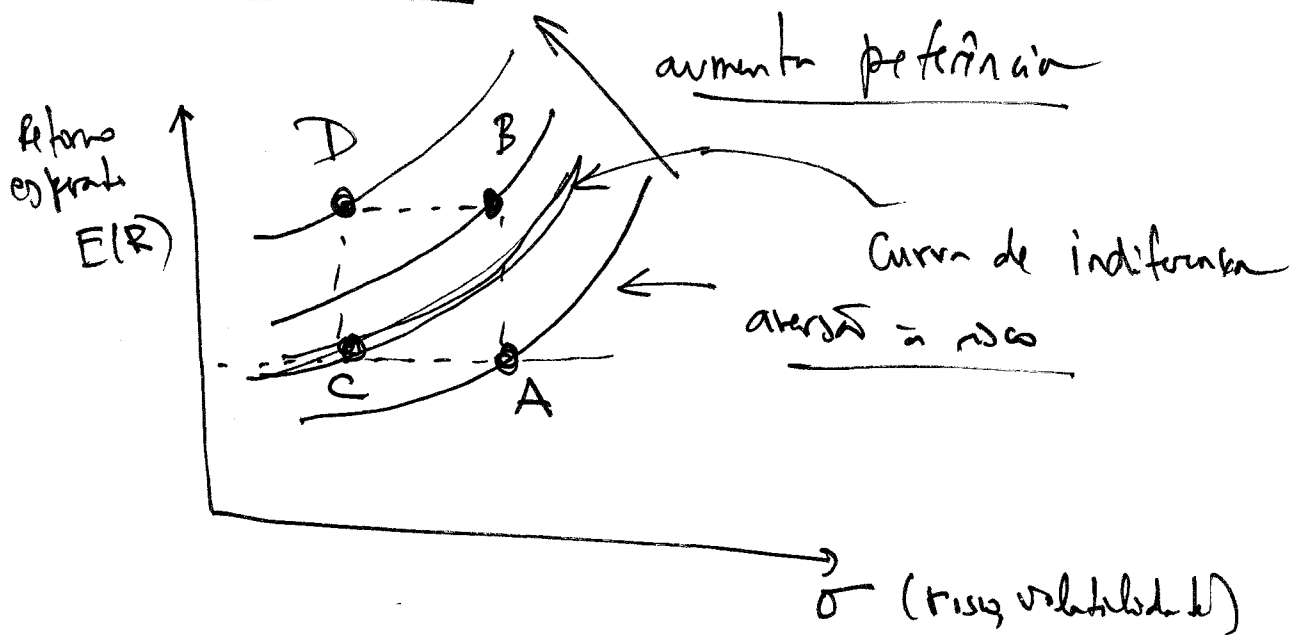 aumenta preferência
Retorno
esperado
E(R)
D
B
Curva de indiferença
aversão a risco
C
A
σ (risco, volatilidade)